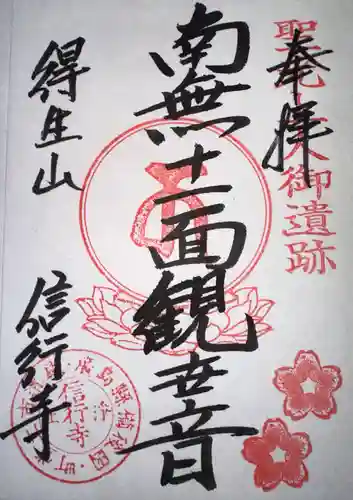 奉拝
聖 人御遺跡
南無十一面観世音
得生山
信行寺
信行寺